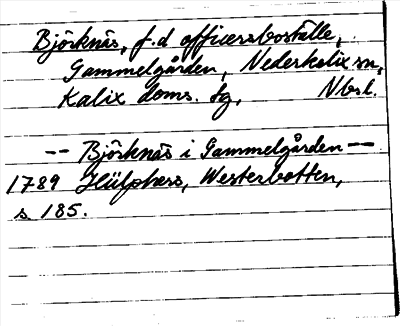 Björknäs, f.d officersboställe,
Gammelgården, Nederkalix sn,
Kalix doms. tg, Nbl.
-- Björknäs i Gammelgården --
1789 Hülphers, Westerbotten,
s 185.